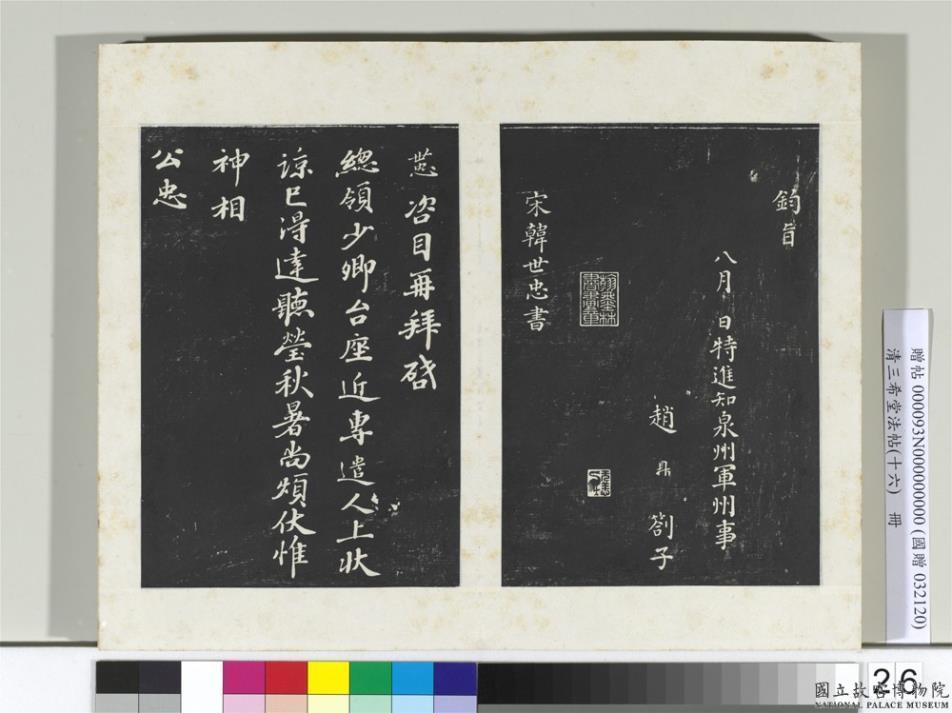 鈞旨
八月　日特進知泉州軍州事
趙鼎劄子
宋韓世忠書
世忠咨目再拜啓
總領少卿台座近專遣人上狀
諒已得達聽瑩秋暑尚煩伏惟
神相
公忠
贈帖 000093N000000000 (國贈 032120)
清三希堂法帖(十六)　冊
26
國立故宮博物院
NATIONAL PALACE MUSEUM